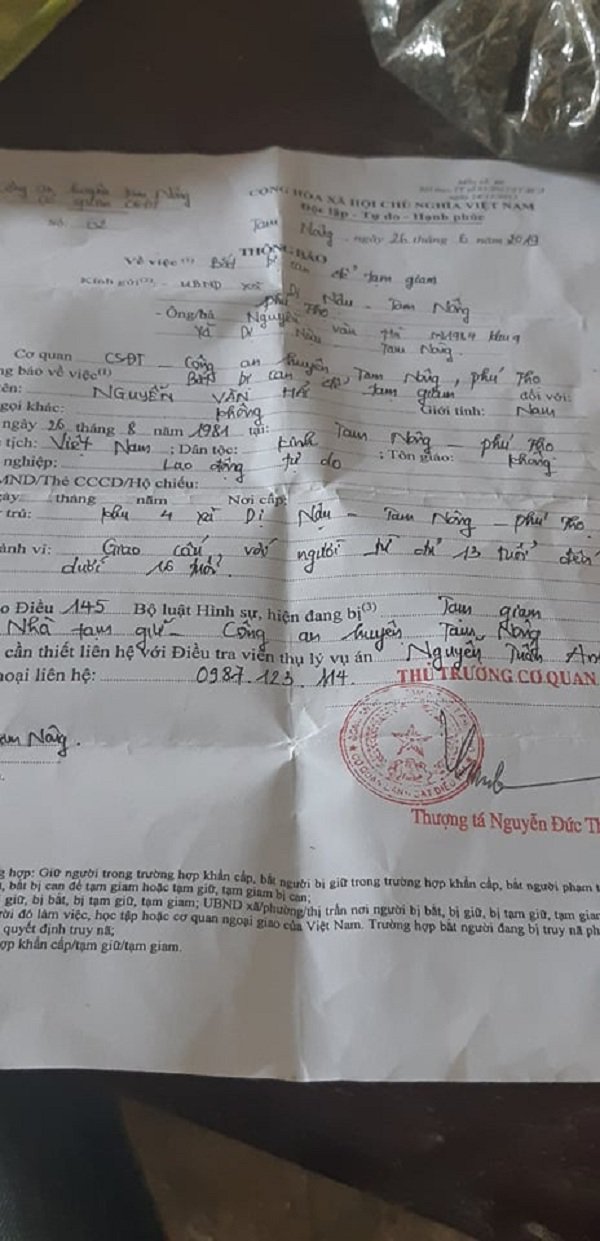 CỘNG HÒA XÃ HỘI CHỦ NGHĨA VIỆT NAM
Độc lập - Tự do - Hạnh phúc
Tam Nông, ngày 26 tháng 6 năm 2019
THÔNG BÁO
Về việc(1) Bắt bị can để tạm giam
Kính gửi(2): - UBND xã Dị Nậu - Tam Nông
phú Thọ
- Ông/bà Nguyễn Văn
xã Dị Nậu Tam Nông.
Cơ quan CSĐT - Công an huyện Tam Nông, phú Thọ
ng báo về việc(1) Bắt bị can để tạm giam đối với:
ên: NGUYỄN VĂN Giới tính: Nam
gọi khác: không
ngày 26 tháng 8 năm 1981 tại: Tam Nông - phú Thọ
tịch: Việt Nam; Dân tộc: kinh; Tôn giáo: không
nghiệp: Lao động tự do
MND/Thẻ CCCD/Hộ chiếu:
ày tháng năm Nơi cấp:
trú: khu 4 xã Dị Nậu - Tam Nông - phú Thọ
ành vi: Giao cấu với người từ đủ 13 tuổi đến
dưới 16 tuổi
o Điều 145 Bộ luật Hình sự, hiện đang bị(3) Tạm giam
Nhà tạm giữ - Công an huyện Tam Nông
cần thiết liên hệ với Điều tra viên thụ lý vụ án Nguyễn Tuấn An
hoại liên hệ: 0987.123.114.
THỦ TRƯỞNG CƠ QUAN
am Nông.
Thượng tá Nguyễn Đức Th
g hợp: Giữ người trong trường hợp khẩn cấp, bắt người bị giữ trong trường hợp khẩn cấp, bắt người phạm t
, bắt bị can để tạm giam hoặc tạm giữ, tạm giam bị can;
giữ, bị bắt, bị tạm giữ, tạm giam; UBND xã/phường/thị trấn nơi người bị bắt, bị giữ, bị tạm giữ, tạm giam
ời đó làm việc, học tập hoặc cơ quan ngoại giao của Việt Nam. Trường hợp bắt người đang bị truy nã ph
quyết định truy nã;
ợp khẩn cấp/tạm giữ/tạm giam.